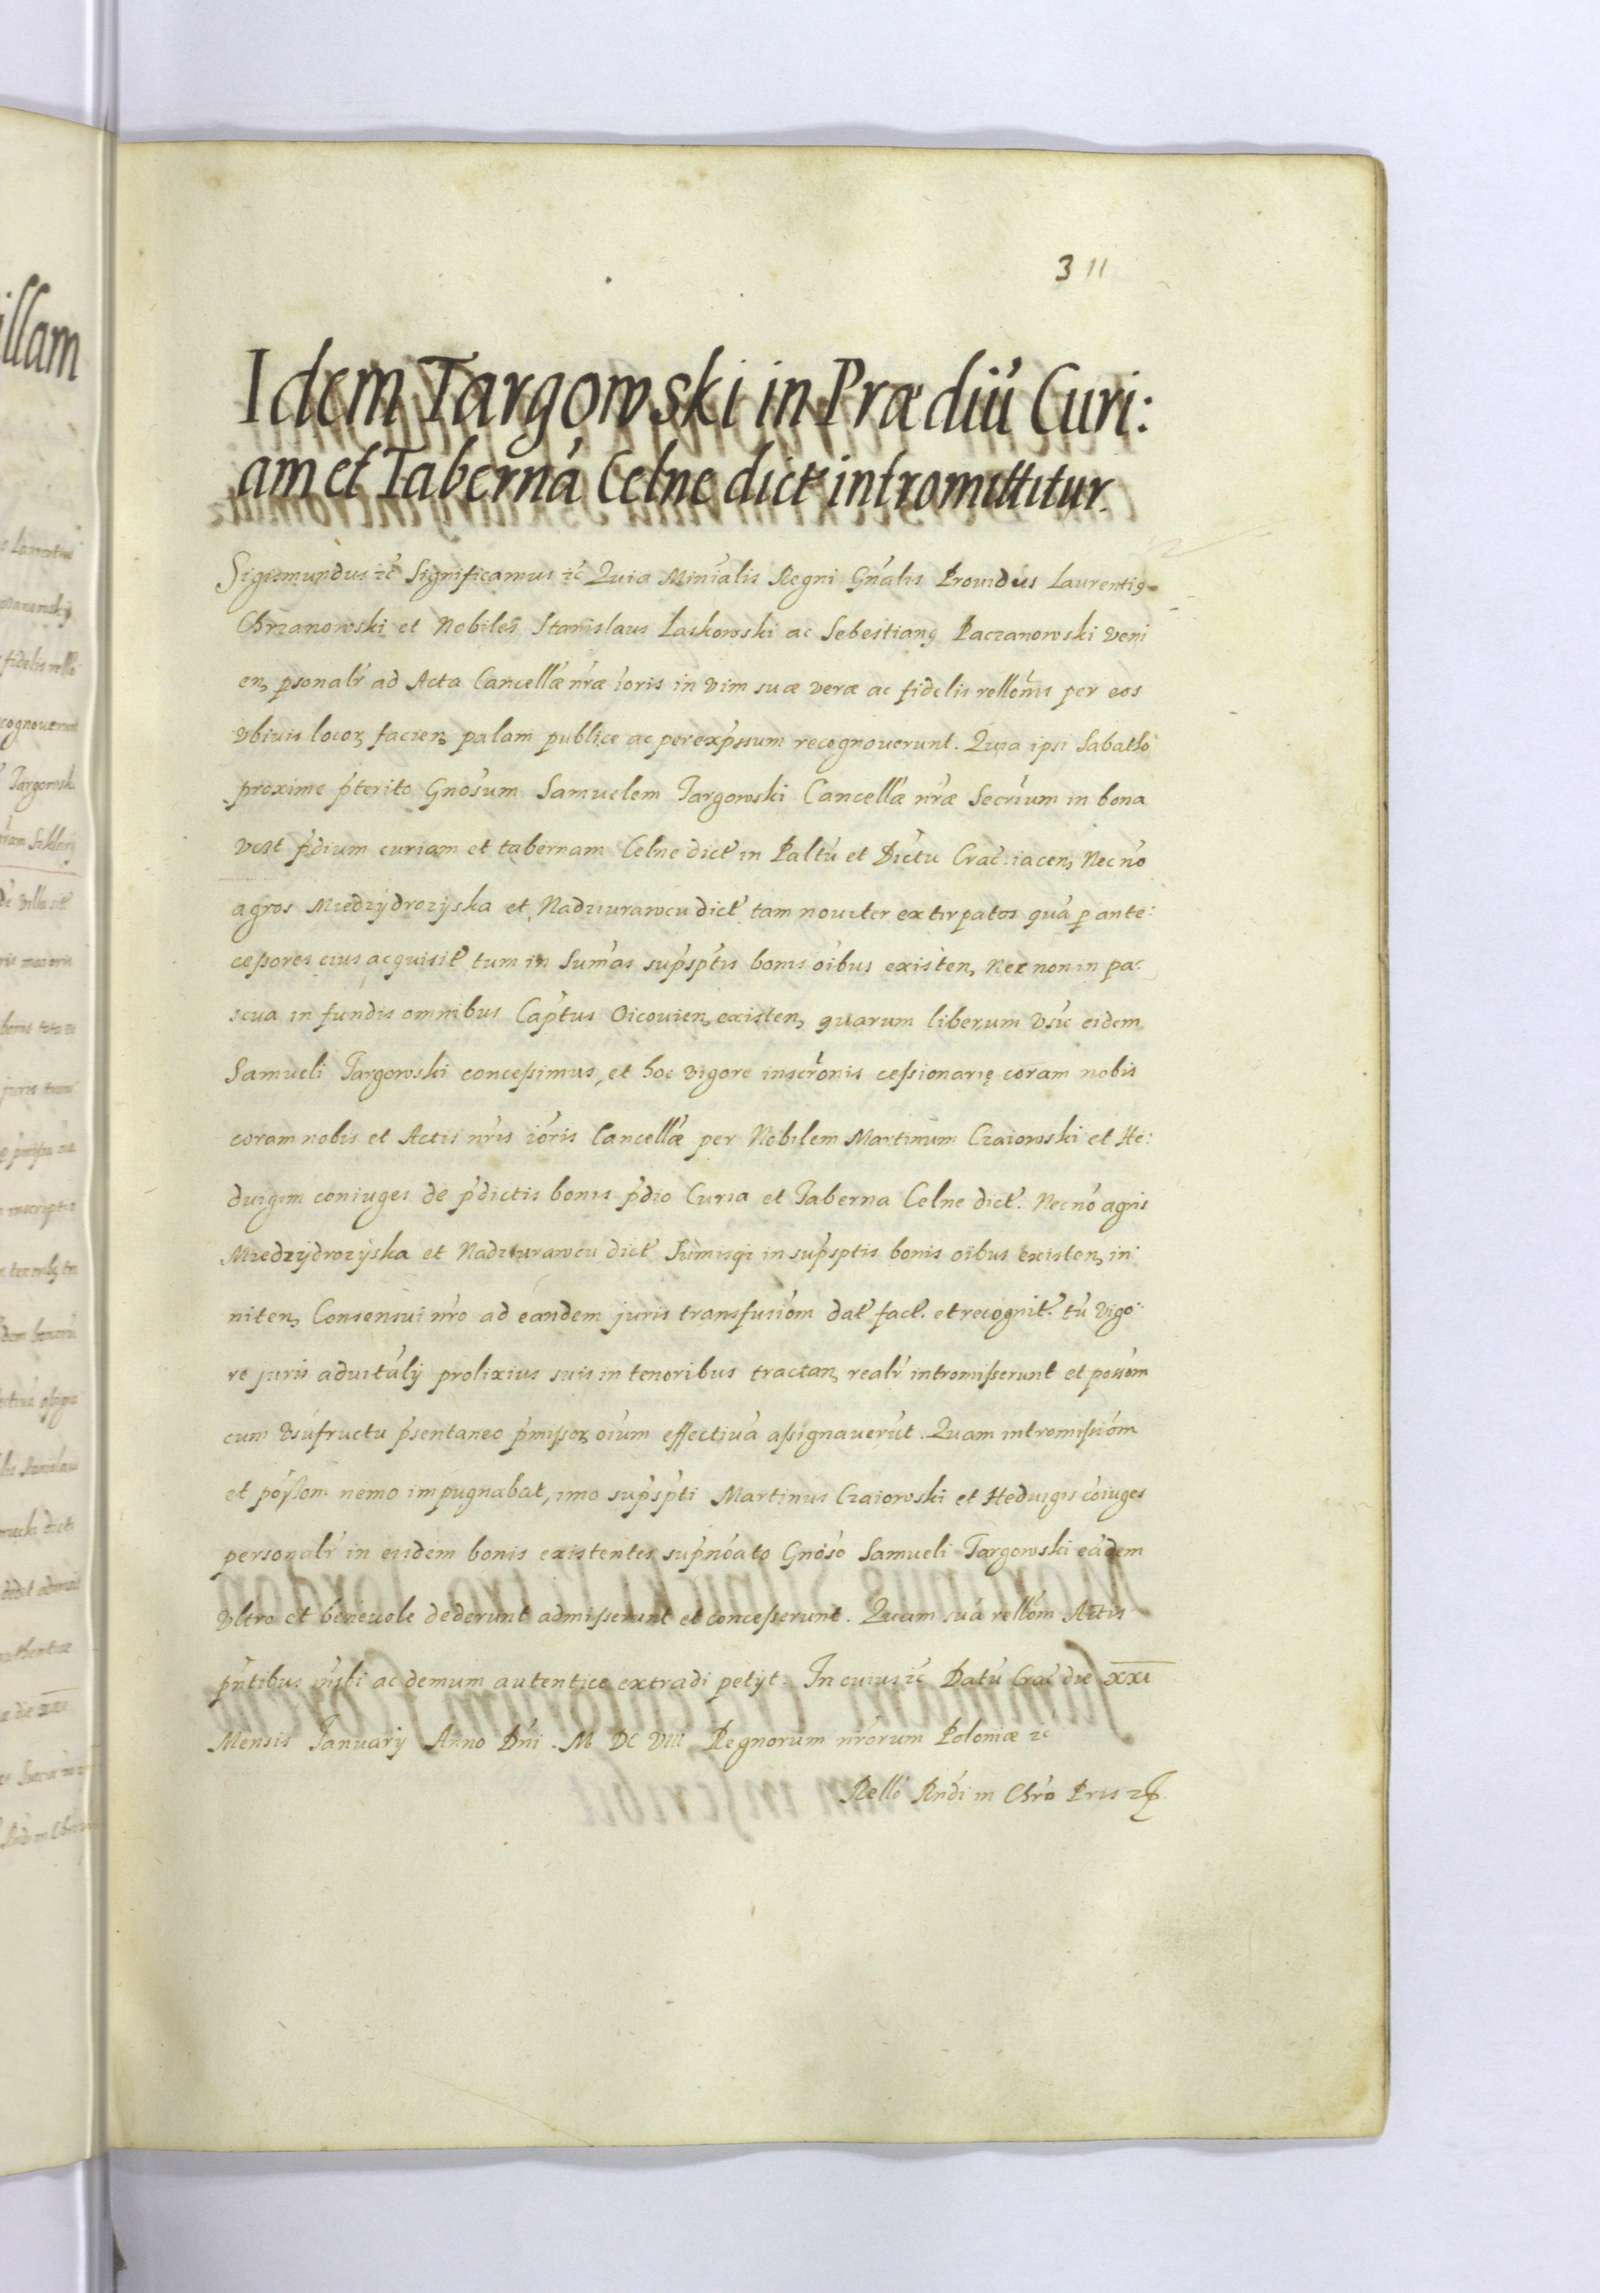 311
Idem Targowski in Prædiũ Curi:
am et Tabernã Celne dict intromittitur.
Sigismundus etc Significamus etc Quia Minialis Regni Gnalis Prouidus Laurenti9
Chrzanowski et Nobiles Stanislaus Laskowski ac Sebestian9 Paczanowski veni
en, psonalr ad Acta Cancellæ nræ ioris in vim suæ veræ ac fidelis rellonis per eos
vbiuis locoꝝ facien, palam publice ac per expssum recognouerunt. Quia ipsi Sabatho
proxime pterito Gnosum Samuelem Targowski Cancellæ nræ Secrium in bona
vczt pdium curiam et tabernam Celne dict in Paltu et Dictu Crac iacen, Nec no
agros Miedzÿdrozÿska et Nadziurawcu dict tam nouiter extirpatos quã p ante:
cessores eius acquisit tum in Sumas supsptis bonis oibus existen, Nec non in pa:
scua in fundis omnibus Captus Oicouien, existen, quarum liberum vsũ eidem
Samueli Targowski concessimus, et hoc vigore inscronis cessionarię coram nobis
coram nobis et Actis nris ioris Cancellæ per Nobilem Martinum Czaiowski et He:
duigim coniuges de pdictis bonis pdio Curia et Taberna Celne dict. Nec no agris
Miedzÿdrozÿska et Nadziurawcu dict Sumisqz in supsptis bonis oibus existen, in:
niten, Consensui nro ad eandem juris transfusiom dat fact. et recognit. tũ vigo:
re juris aduitalÿ prolixius suis in tenoribus tractan, realr intromisserunt et possom
cum vsufructu psentaneo pmissoꝝ oium effectiuã assignauerũt. Quam intromissiom
et possom nemo impugnabat, imo supspti Martinus Czaiowski et Heduigis coiuges
personalr in eisdem bonis existentes supnoato Gnoso Samueli Targowski eãdem
vltro et beneuole dederunt admisserunt et concesserunt. Quam suã rellom Actis
pntibus inscbi ac demum autentice extradi petÿt. In cuius etc Datũ Crac die XXI
Mensis Januarÿ Anno Dni. M DC VIII Regnorum nrorum Poloniæ etc
Rello Rndi in Chro Pris etc